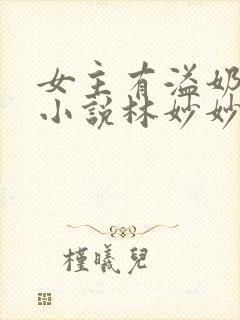 女主有溢奶
小说林妙妙
槿曦兒